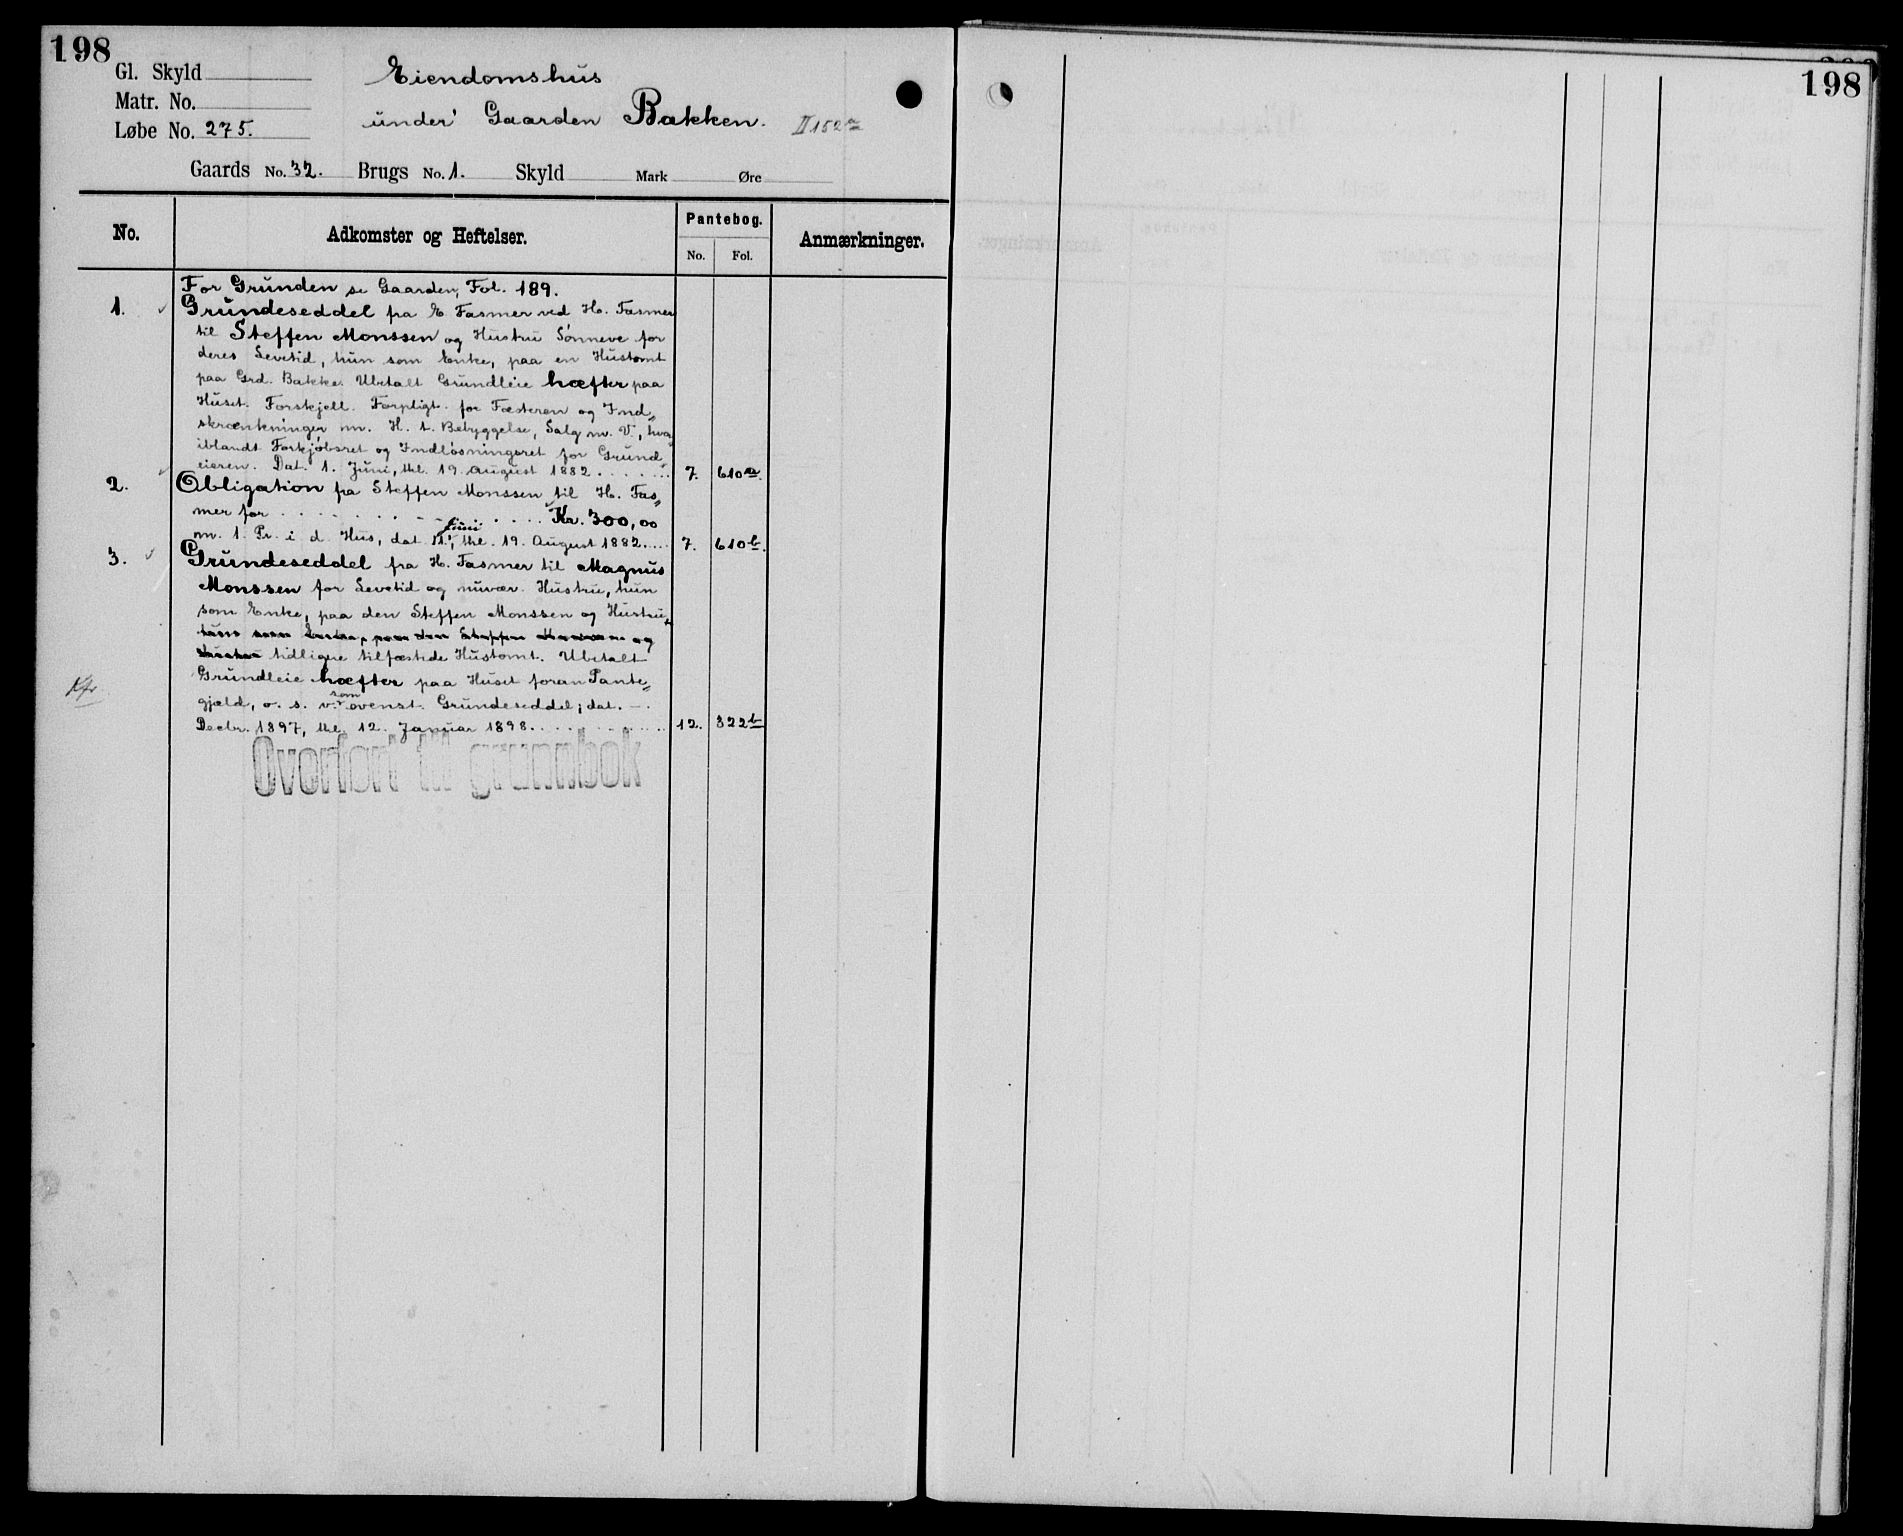 198
Gl. Skyld
Matr. No.
Løbe No. 275.
Eiendomshus
under Gaarden Bakken. II 152a
Gaards No. 32. Brugs No. 1. Skyld Mark Øre
No. Adkomster og Heftelser. Pantebog. No. Fol. Anmærkninger.
For Grunden se Gaarden, Fol. 189.
1. Grundeseddel fra E. Fasmer ved H. Fasmer
til Steffen Monssen og Hustru Sønneve for
deres Levetid, hun som Enke, paa en Hustomt
paa Grd. Bakke. Ubetalt Grundleie hæfter paa
Huset. Forskjell. Forpligt. for Fæsteren og Ind„
skrænkninger m. H. t. Bebyggelse, Salg m. V., hvor„
iblandt Forkjøbsret og Indløsningsret for Grund„
eieren. Dat. 1. Juni, thl. 19. August 1882. . . . . . 7. 610a.
2. Obligation fra Steffen Monssen til H. Fas„
mer for . . . . . . . . . . . . . Kr. 300,00
m. 1. Pr. i d. Hus, dat. 11. Juni, thl. 19. August 1882. . . . 7. 610b.
3. Grundeseddel fra H. Fasmer til Magnus
Monssen for Levetid og nuvær. Hustru, hun
som Enke, paa den Steffen Monssen og Hustru
hun som Enke, paa den Steffen Monssen og
Hustru tidligere tilfæstede Hustomt. Ubetalt
Grundleie hæfter paa Huset foran Pante„
gjæld, o. s. v. som ovenst. Grundeseddel; dat. –.
Decbr. 1897, thl. 12. Januar 1898. . . . . . . . . . 12. 322b
Kfr
Overført til grunnbok
198